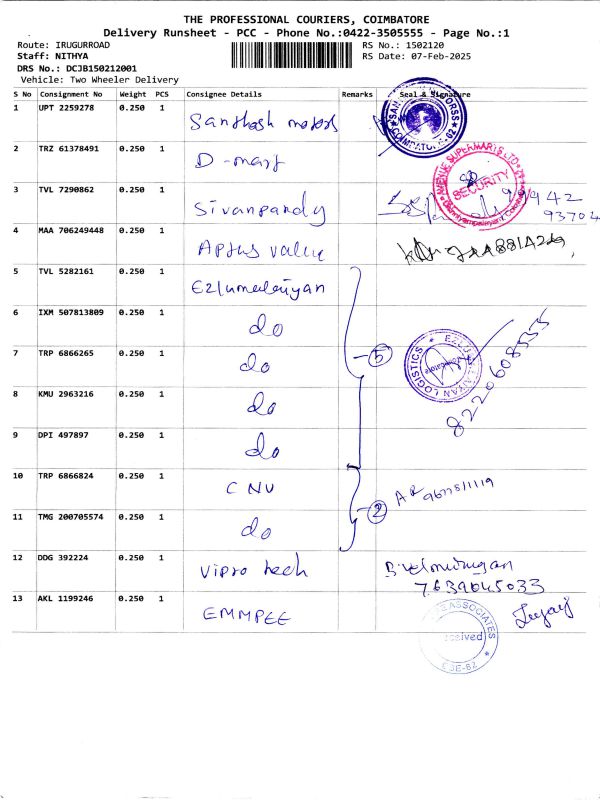 THE PROFESSIONAL COURIERS, COIMBATORE
Delivery Runsheet - PCC - Phone No.:0422-3505555 - Page No.:1
Route: IRUGURROAD
RS No.: 1502120
Staff: NITHYA
RS Date: 07-Feb-2025
DRS No.: DCJB150212001
Vehicle: Two Wheeler Delivery
S No Consignment No Weight PCS Consignee Details Remarks Seal & Signature
1 UPT 2259278 0.250 1 Santhosh motors
2 TRZ 61378491 0.250 1 D-mart
AVENUE SUPERMARTS LTD
SECURITY
3 TVL 7290862 0.250 1 Sivanpandy
99942
93704
4 MAA 706249448 0.250 1 Aptus value
5 TVL 5282161 0.250 1 Ezlumalaiyan
6 IXM 507813809 0.250 1 do
7 TRP 6866265 0.250 1 do
5
LOGISTICS
8220608555
8 KMU 2963216 0.250 1 do
9 DPI 497897 0.250 1 do
10 TRP 6866824 0.250 1 CNU
11 TMG 200705574 0.250 1 do
2
12 DDG 392224 0.250 1 Vipro tech
7639045033
13 AKL 1199246 0.250 1 EMMPEE
ASSOCIATES